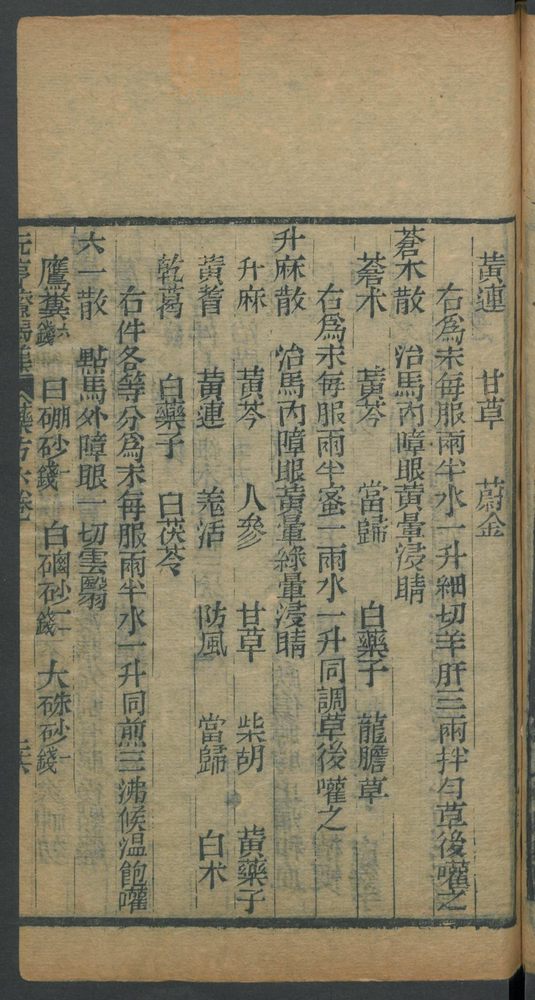 黃連　甘草　蔚金
右爲末每服兩半水一升細切羊肝三兩拌勻草後嚾之
蒼术散　治馬內障眼黃暈浸睛
蒼术　黃芩　當歸　白藥子　龍膽草
右爲末每服兩半蜜一兩水一升同調草後嚾之
升麻散　治馬內障眼黃暈綠暈浸睛
升麻　黃芩　人參　甘草　柴胡　黃藥子
黃耆　黃連　羌活　防風　當歸　白术
乾葛　白藥子　白茯苓
右件各等分爲末每服兩半水一升同煎三沸候温飽嚾
六一散　點馬外障眼一切雲翳
鷹糞六錢　白硼砂一錢　白硇砂二錢　大硃砂一錢
元亨療馬集　藥方六卷